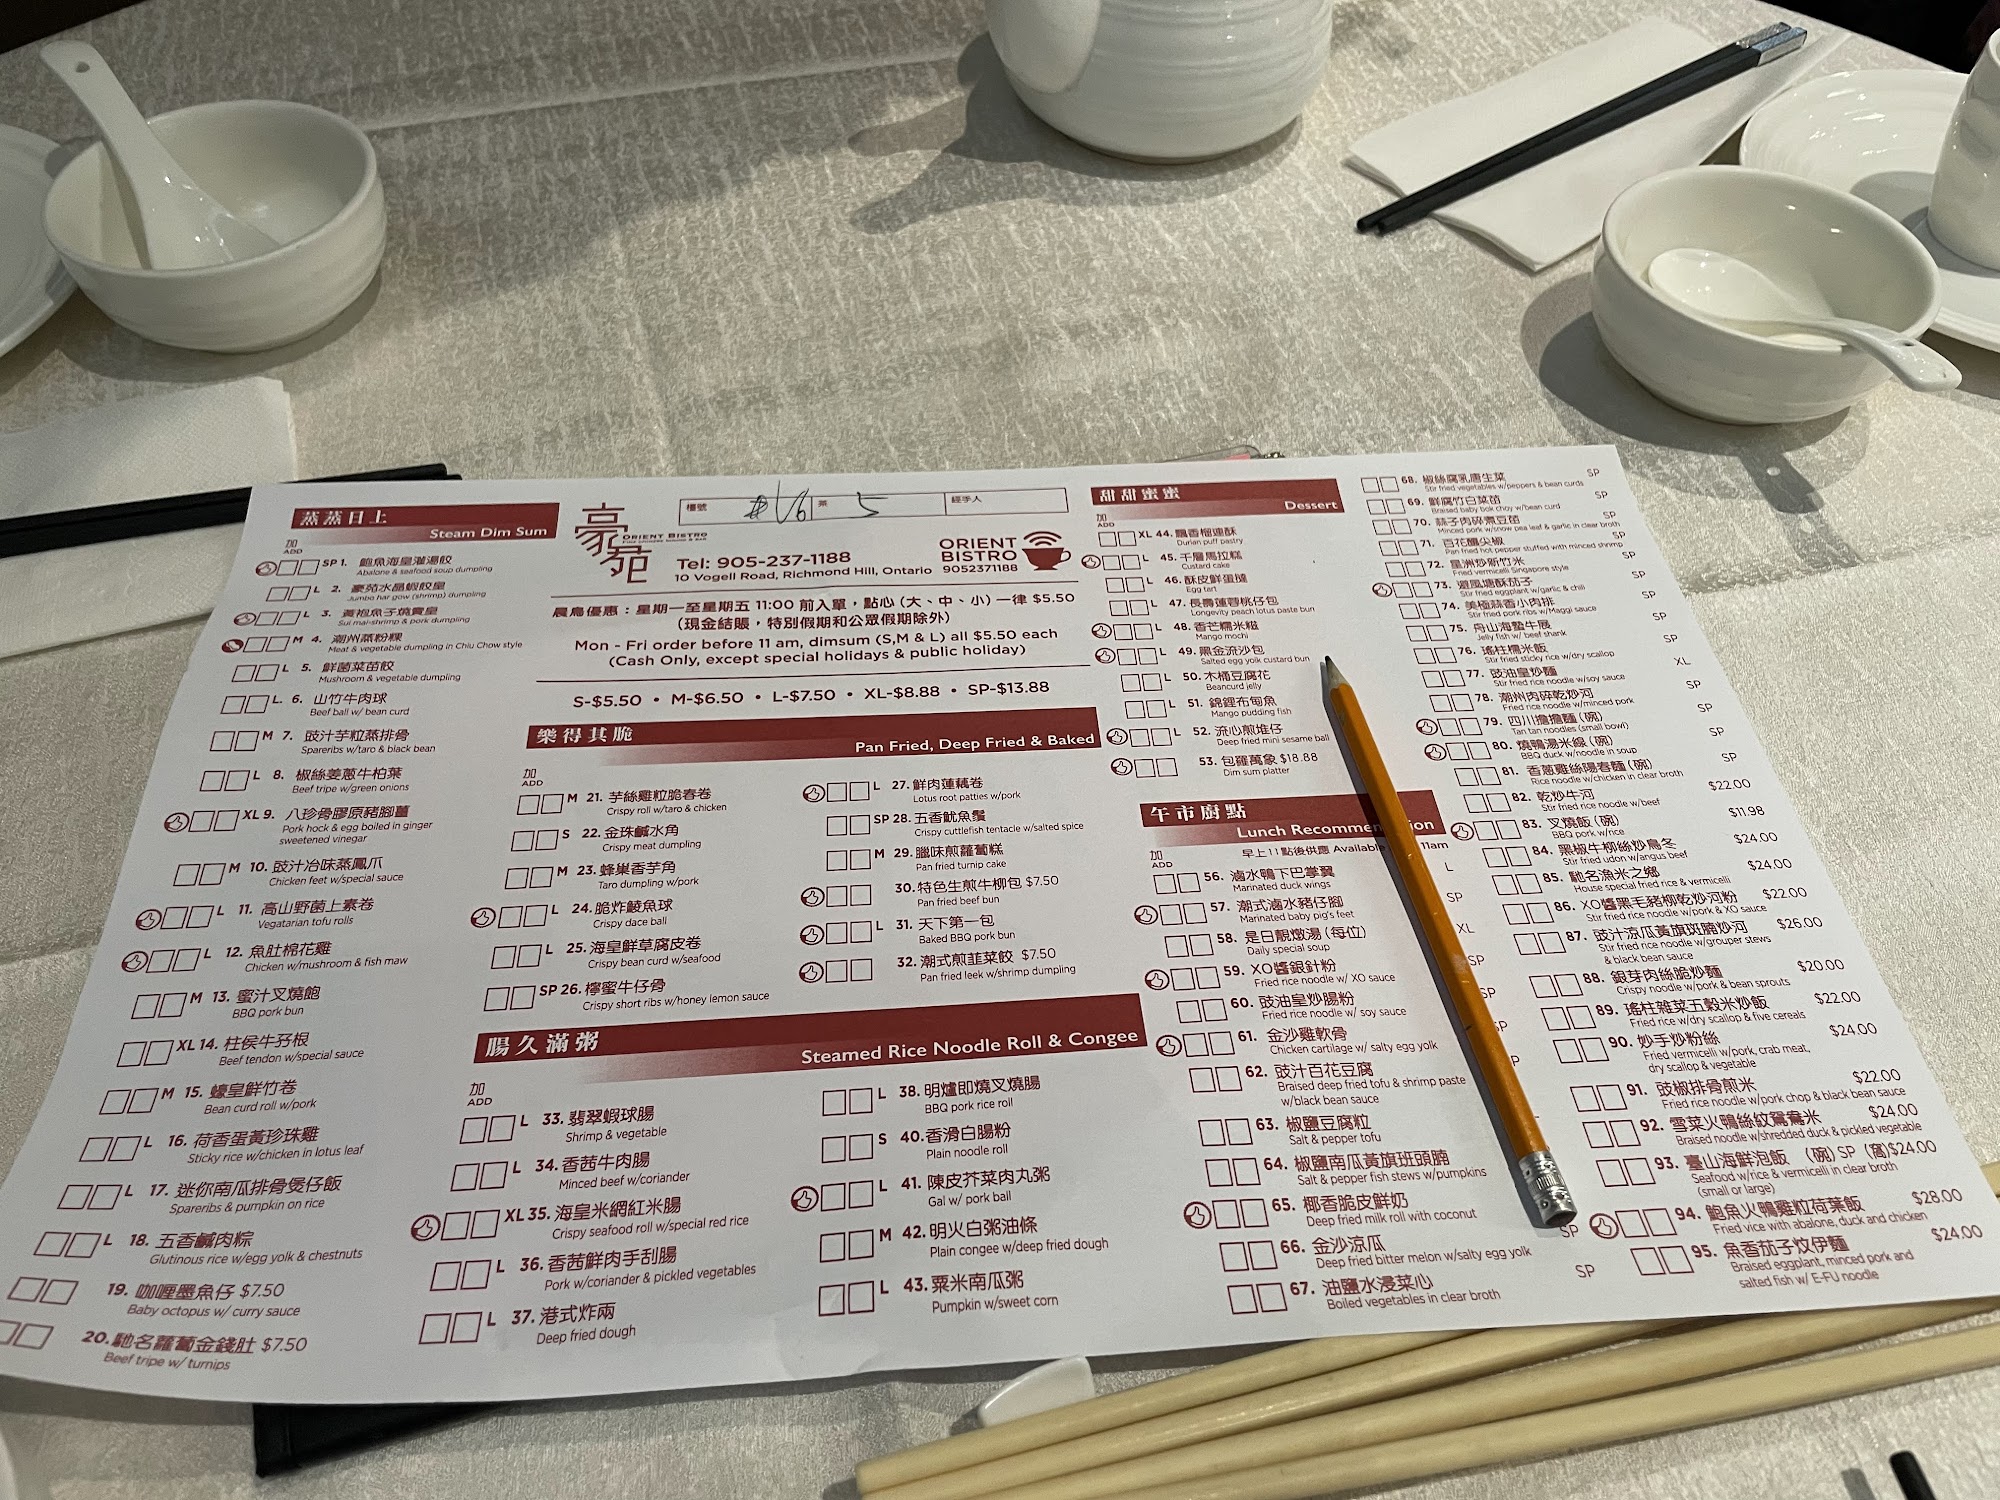 蒸蒸日上
Steam Dim Sum
加
ADD
SP 1. 鮑魚海皇灌湯餃
Abalone & seafood soup dumpling
L 2. 豪苑水晶蝦餃皇
Jumbo har gow (shrimp) dumpling
L 3. 黃袍魚子燒賣皇
Sui mai-shrimp & pork dumpling
M 4. 潮州蒸粉粿
Meat & vegetable dumpling in Chiu Chow style
L 5. 鮮菌菜苗餃
Mushroom & vegetable dumpling
L 6. 山竹牛肉球
Beef ball w/ bean curd
M 7. 豉汁芋粒蒸排骨
Spareribs w/taro & black bean
L 8. 椒絲姜蔥牛柏葉
Beef tripe w/green onions
XL 9. 八珍骨膠原豬腳薑
Pork hock & egg boiled in ginger
sweetened vinegar
M 10. 豉汁冶味蒸鳳爪
Chicken feet w/special sauce
L 11. 高山野菌上素卷
Vegatarian tofu rolls
L 12. 魚肚棉花雞
Chicken w/mushroom & fish maw
M 13. 蜜汁叉燒飽
BBQ pork bun
XL 14. 柱侯牛孖根
Beef tendon w/special sauce
M 15. 蠔皇鮮竹卷
Bean curd roll w/pork
L 16. 荷香蛋黃珍珠雞
Sticky rice w/chicken in lotus leaf
L 17. 迷你南瓜排骨煲仔飯
Spareribs & pumpkin on rice
L 18. 五香鹹肉粽
Glutinous rice w/egg yolk & chestnuts
19. 咖喱墨魚仔 $7.50
Baby octopus w/ curry sauce
20. 馳名蘿蔔金錢肚 $7.50
Beef tripe w/ turnips
豪苑
ORIENT BISTRO
檯號 #16 茶 5 經手人
Tel: 905-237-1188
10 Vogell Road, Richmond Hill, Ontario
ORIENT
BISTRO
9052371188
晨鳥優惠：星期一至星期五 11:00 前入單，點心 (大、中、小) 一律 $5.50
(現金結賬，特別假期和公眾假期除外)
Mon - Fri order before 11 am, dimsum (S,M & L) all $5.50 each
(Cash Only, except special holidays & public holiday)
S-$5.50 • M-$6.50 • L-$7.50 • XL-$8.88 • SP-$13.88
樂得其脆
Pan Fried, Deep Fried & Baked
加
ADD
M 21. 芋絲雞粒脆春卷
Crispy roll w/taro & chicken
S 22. 金珠鹹水角
Crispy meat dumpling
M 23. 蜂巢香芋角
Taro dumpling w/pork
L 24. 脆炸鯪魚球
Crispy dace ball
L 25. 海皇鮮草腐皮卷
Crispy bean curd w/seafood
SP 26. 檸蜜牛仔骨
Crispy short ribs w/honey lemon sauce
L 27. 鮮肉蓮藕卷
Lotus root patties w/pork
SP 28. 五香魷魚鬚
Crispy cuttlefish tentacle w/salted spice
M 29. 臘味煎蘿蔔糕
Pan fried turnip cake
30. 特色生煎牛柳包 $7.50
Pan fried beef bun
L 31. 天下第一包
Baked BBQ pork bun
32. 潮式煎韮菜餃 $7.50
Pan fried leek w/shrimp dumpling
腸久滿粥
Steamed Rice Noodle Roll & Congee
加
ADD
L 33. 翡翠蝦球腸
Shrimp & vegetable
L 34. 香茜牛肉腸
Minced beef w/coriander
XL 35. 海皇米網紅米腸
Crispy seafood roll w/special red rice
L 36. 香茜鮮肉手刮腸
Pork w/coriander & pickled vegetables
L 37. 港式炸兩
Deep fried dough
L 38. 明爐即燒叉燒腸
BBQ pork rice roll
S 40. 香滑白腸粉
Plain noodle roll
L 41. 陳皮芥菜肉丸粥
Gal w/ pork ball
M 42. 明火白粥油條
Plain congee w/deep fried dough
L 43. 粟米南瓜粥
Pumpkin w/sweet corn
甜甜蜜蜜
Dessert
加
ADD
XL 44. 飄香榴槤酥
Durian puff pastry
L 45. 千層馬拉糕
Custard cake
L 46. 酥皮鮮蛋撻
Egg tart
L 47. 長壽蓮蓉桃仔包
Longevity peach lotus paste bun
L 48. 香芒糯米糍
Mango mochi
L 49. 黑金流沙包
Salted egg yolk custard bun
L 50. 木桶豆腐花
Beancurd jelly
L 51. 錦鯉布甸魚
Mango pudding fish
L 52. 流心煎堆仔
Deep fried mini sesame ball
53. 包羅萬象 $18.88
Dim sum platter
午市廚點
Lunch Recommen ion
早上11點後供應 Available 11am
加
ADD
56. 滷水鴨下巴掌翼 L
Marinated duck wings
57. 潮式滷水豬仔腳 SP
Marinated baby pig's feet
58. 是日靚燉湯 (每位) XL
Daily special soup
59. XO醬銀針粉 SP
Fried rice noodle w/ XO sauce
60. 豉油皇炒腸粉 SP
Fried rice noodle w/ soy sauce
61. 金沙雞軟骨
Chicken cartilage w/ salty egg yolk
62. 豉汁百花豆腐
Braised deep fried tofu & shrimp paste
w/black bean sauce
63. 椒鹽豆腐粒
Salt & pepper tofu
64. 椒鹽南瓜黃旗班頭腩
Salt & pepper fish stews w/pumpkins
65. 椰香脆皮鮮奶
Deep fried milk roll with coconut
66. 金沙涼瓜 SP
Deep fried bitter melon w/salty egg yolk
67. 油鹽水浸菜心 SP
Boiled vegetables in clear broth
68. 椒絲腐乳唐生菜 SP
Stir fried vegetables w/peppers & bean curds
69. 鮮腐竹白菜苗 SP
Braised baby bok choy w/bean curd
70. 蒜子肉碎煮豆苗 SP
Minced pork w/snow pea leaf & garlic in clear broth
71. 百花釀尖椒 SP
Pan fried hot pepper stuffed with minced shrimp
72. 星洲炒新竹米 SP
Fried vermicelli Singapore style
73. 避風塘酥茄子 SP
Stir fried eggplant w/garlic & chili
74. 美極蒜香小肉排 SP
Stir fried pork ribs w/Maggi sauce
75. 舟山海蟄牛展 SP
Jelly fish w/ beef shank
76. 瑤柱糯米飯 SP
Stir fried sticky rice w/dry scallop
77. 豉油皇炒麵 XL
Stir fried rice noodle w/soy sauce
78. 潮州肉碎乾炒河 SP
Fried rice noodle w/minced pork
79. 四川擔擔麵 (碗) SP
Tan tan noodles (small bowl)
80. 燒鴨湯米線 (碗) SP
BBQ duck w/noodle in soup
81. 香蔥雞絲陽春麵 (碗) SP
Rice noodle w/chicken in clear broth
82. 乾炒牛河 $22.00
Stir fried rice noodle w/beef
83. 叉燒飯 (碗) $11.98
BBQ pork w/rice
84. 黑椒牛柳絲炒烏冬 $24.00
Stir fried udon w/angus beef
85. 馳名漁米之鄉 $24.00
House special fried rice & vermicelli
86. XO醬黑毛豬柳乾炒河粉 $22.00
Stir fried rice noodle w/pork & XO sauce
87. 豉汁涼瓜黃旗斑腩炒河 $26.00
Stir fried rice noodle w/grouper stews
& black bean sauce
88. 銀芽肉絲脆炒麵 $20.00
Crispy noodle w/pork & bean sprouts
89. 瑤柱雜菜五穀米炒飯 $22.00
Fried rice w/dry scallop & five cereals
90. 妙手炒粉絲 $24.00
Fried vermicelli w/pork, crab meat,
dry scallop & vegetable
91. 豉椒排骨煎米 $22.00
Fried rice noodle w/pork chop & black bean sauce
92. 雪菜火鴨絲炆鴛鴦米 $24.00
Braised noodle w/shredded duck & pickled vegetable
93. 臺山海鮮泡飯 (碗) SP (窩)$24.00
Seafood w/rice & vermicelli in clear broth
(small or large)
94. 鮑魚火鴨雞粒荷葉飯 $28.00
Fried vice with abalone, duck and chicken
95. 魚香茄子炆伊麵 $24.00
Braised eggplant, minced pork and
salted fish w/ E-FU noodle